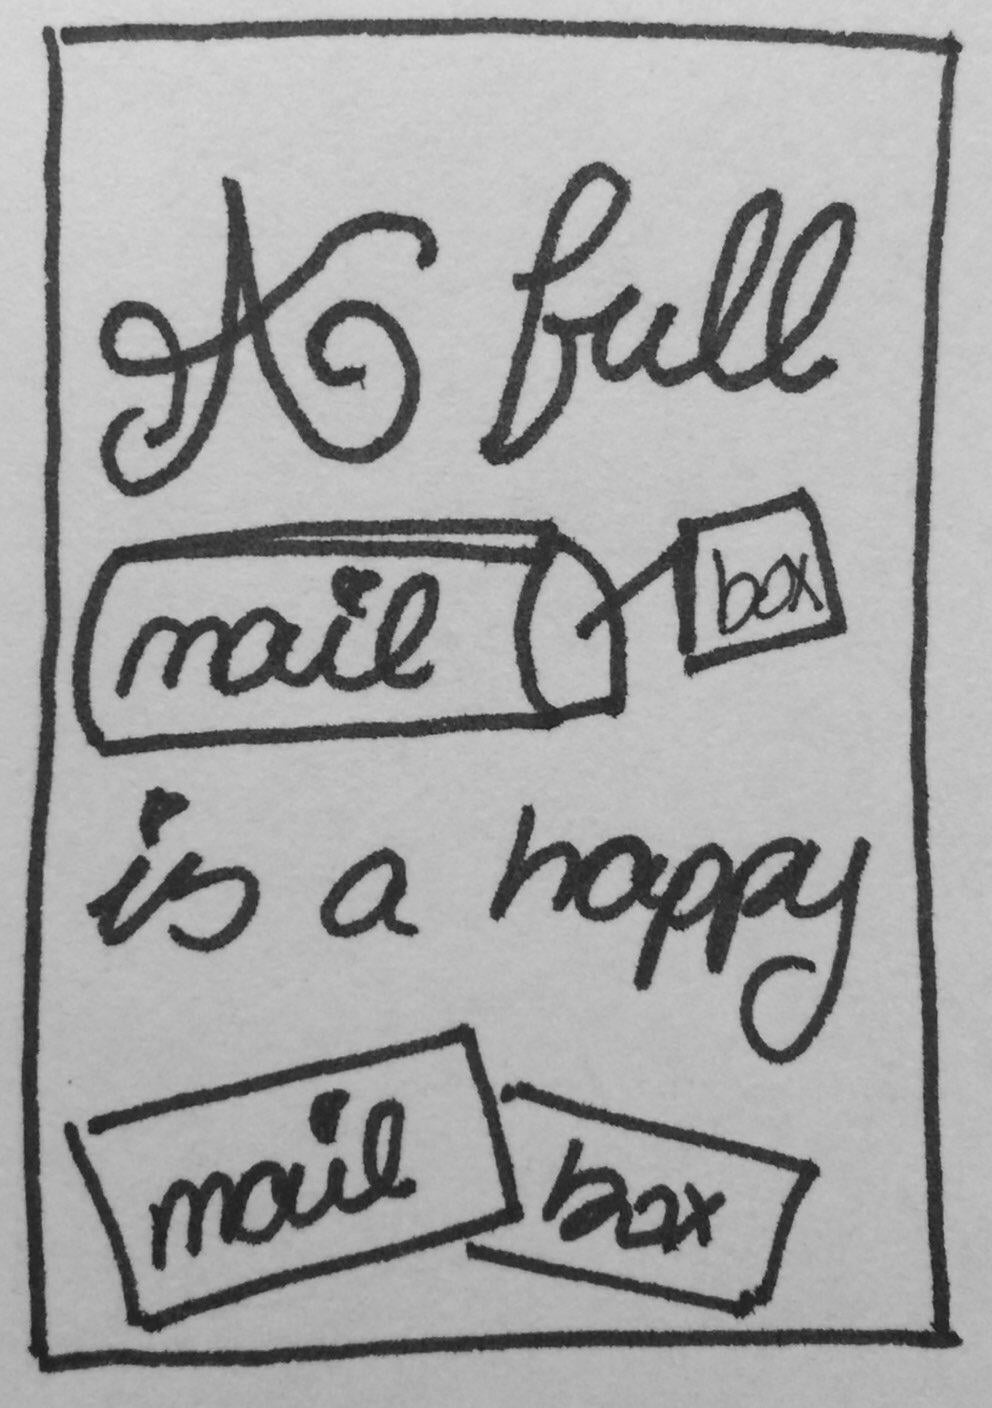 A full
mail box
is a happy
mail box